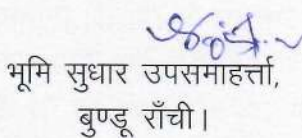 भूमि सुधार उपसमाहर्त्ता,
बुण्डू राँची।